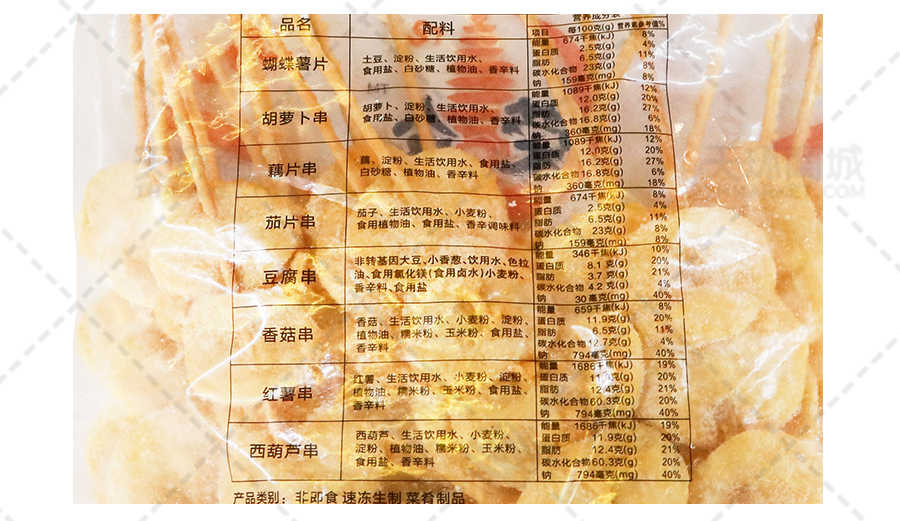 品名 配料 营养成分表
项目 每100克(g) 营养素参考值%
蝴蝶薯片
土豆、淀粉、生活饮用水、
食用盐、白砂糖、植物油、香辛料
能量 674千焦(kJ) 8%
蛋白质 2.5克(g) 4%
脂肪 6.5克(g) 11%
碳水化合物 23克(g) 8%
钠 159毫克(mg) 8%
胡萝卜串
胡萝卜、淀粉、生活饮用水、
食用盐、白砂糖、植物油、香辛料
能量 1089千焦(kJ) 12%
蛋白质 12.0克(g) 20%
脂肪 16.2克(g) 27%
碳水化合物 16.8克(g) 6%
钠 360毫克(mg) 18%
藕片串
藕、淀粉、生活饮用水、食用盐、
白砂糖、植物油、香辛料
能量 1089千焦(kJ) 12%
蛋白质 12.0克(g) 20%
脂肪 16.2克(g) 27%
碳水化合物 16.8克(g) 6%
钠 360毫克(mg) 18%
茄片串
茄子、生活饮用水、小麦粉、
食用植物油、食用盐、香辛调味料
能量 674千焦(kJ) 8%
蛋白质 2.5克(g) 4%
脂肪 6.5克(g) 11%
碳水化合物 23克(g) 8%
钠 159毫克(mg) 8%
豆腐串
非转基因大豆、小香葱、饮用水、色拉
油、食用氯化镁(食用卤水)小麦粉、
香辛料、食用盐
能量 346千焦(kJ) 10%
蛋白质 8.1克(g) 20%
脂肪 3.7克(g) 21%
碳水化合物 4.2克(g) 4%
钠 30毫克(mg) 40%
香菇串
香菇、生活饮用水、小麦粉、淀粉、
植物油、糯米粉、玉米粉、食用盐、
香辛料
能量 659千焦(kJ) 8%
蛋白质 11.9克(g) 20%
脂肪 6.5克(g) 11%
碳水化合物 12.7克(g) 4%
钠 794毫克(mg) 40%
红薯串
红薯、生活饮用水、小麦粉、淀粉、
植物油、糯米粉、玉米粉、食用盐、
香辛料
能量 1686千焦(kJ) 19%
蛋白质 克(g) 20%
脂肪 12.4克(g) 21%
碳水化合物 60.3克(g) 20%
钠 794毫克(mg) 40%
西葫芦串
西葫芦、生活饮用水、小麦粉、
淀粉、植物油、糯米粉、玉米粉、
食用盐、香辛料
能量 1686千焦(kJ) 19%
蛋白质 11.9克(g) 20%
脂肪 12.4克(g) 21%
碳水化合物 60.3克(g) 20%
钠 794毫克(mg) 40%
产品类别：非即食 速冻生制 菜肴制品
城
.COM